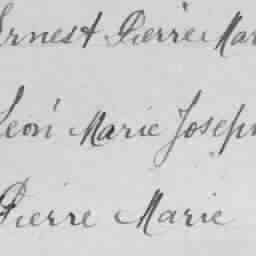 Ernest Pierre Mar
Léon Marie Joseph
Pierre Marie